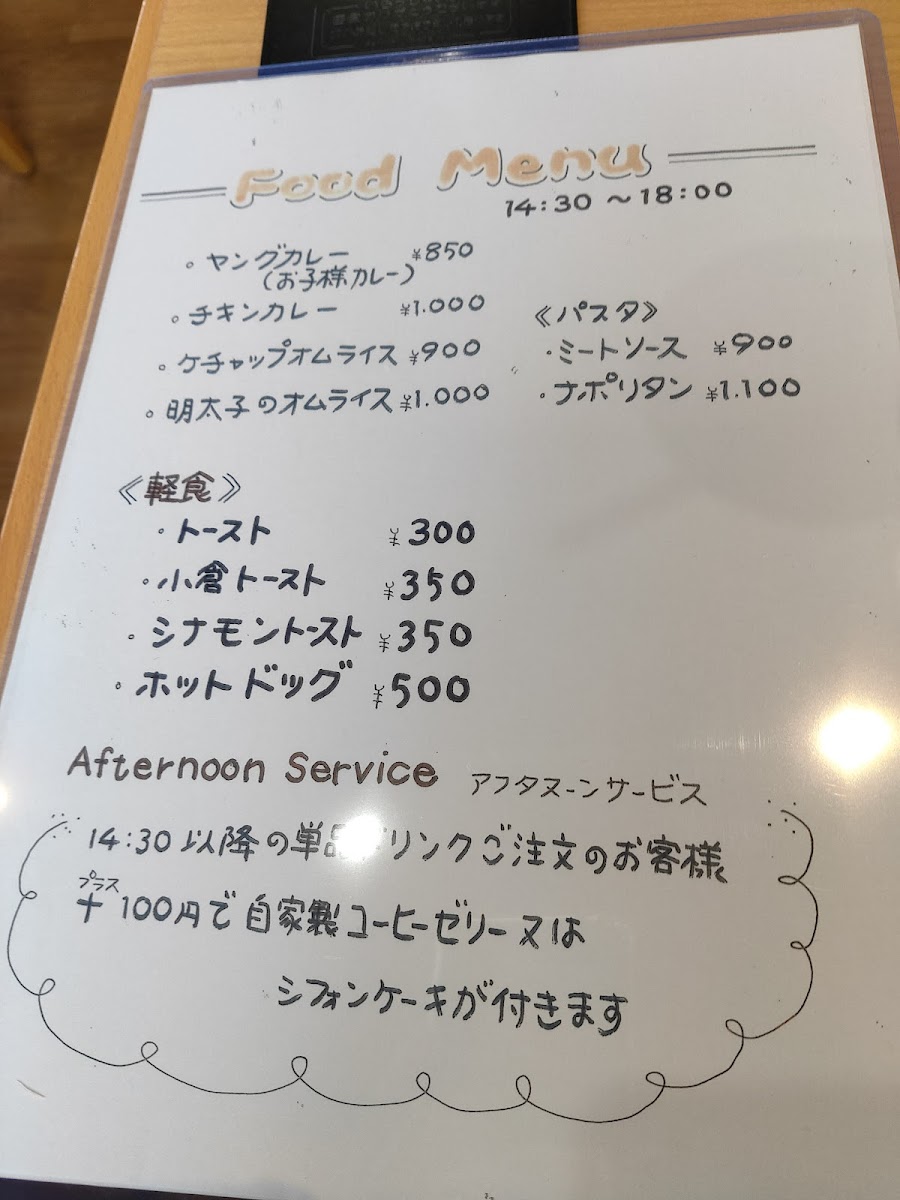 Food Menu
14:30 ～18:00
。ヤングカレー ¥850
(お子様カレー)
。チキンカレー ¥1.000
。ケチャップオムライス ¥900
。明太子のオムライス ¥1.000
《パスタ》
・ミートソース ¥900
・ナポリタン ¥1.100
《軽食》
・トースト ¥300
・小倉トースト ¥350
。シナモントースト ¥350
・ホットドッグ ¥500
Afternoon Service アフタヌーンサービス
14:30 以降の単品ドリンクご注文のお客様
プラス
+ 100円で自家製コーヒーゼリー又は
シフォンケーキが付きます